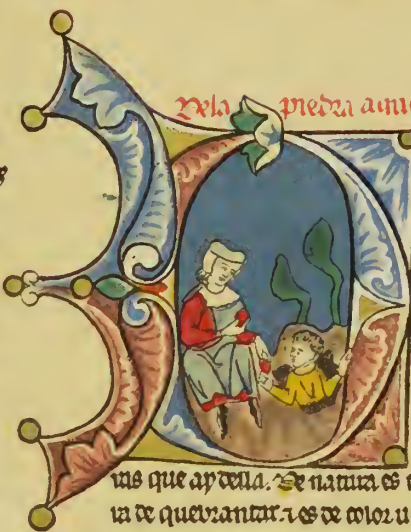 Dela piedra
uis que ay della. De natura es
ua de quebrantar. ⁊ es de color